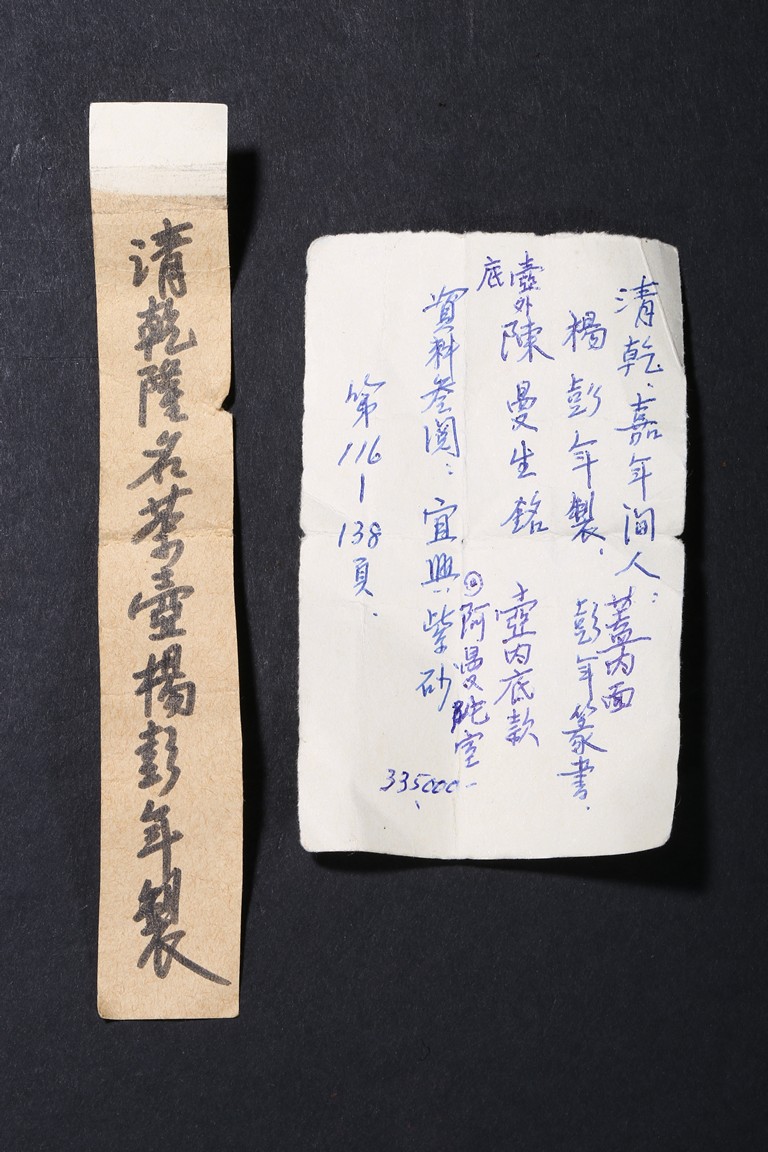 清乾隆名茶壺楊彭年製
清乾.嘉年间人:
蓋内面
楊彭年製.
彭年篆書.
壺外底
陳曼生銘
壺内底款
阿曼陀室
資料叁閲:宜興紫砂
第116-138頁.
335000-